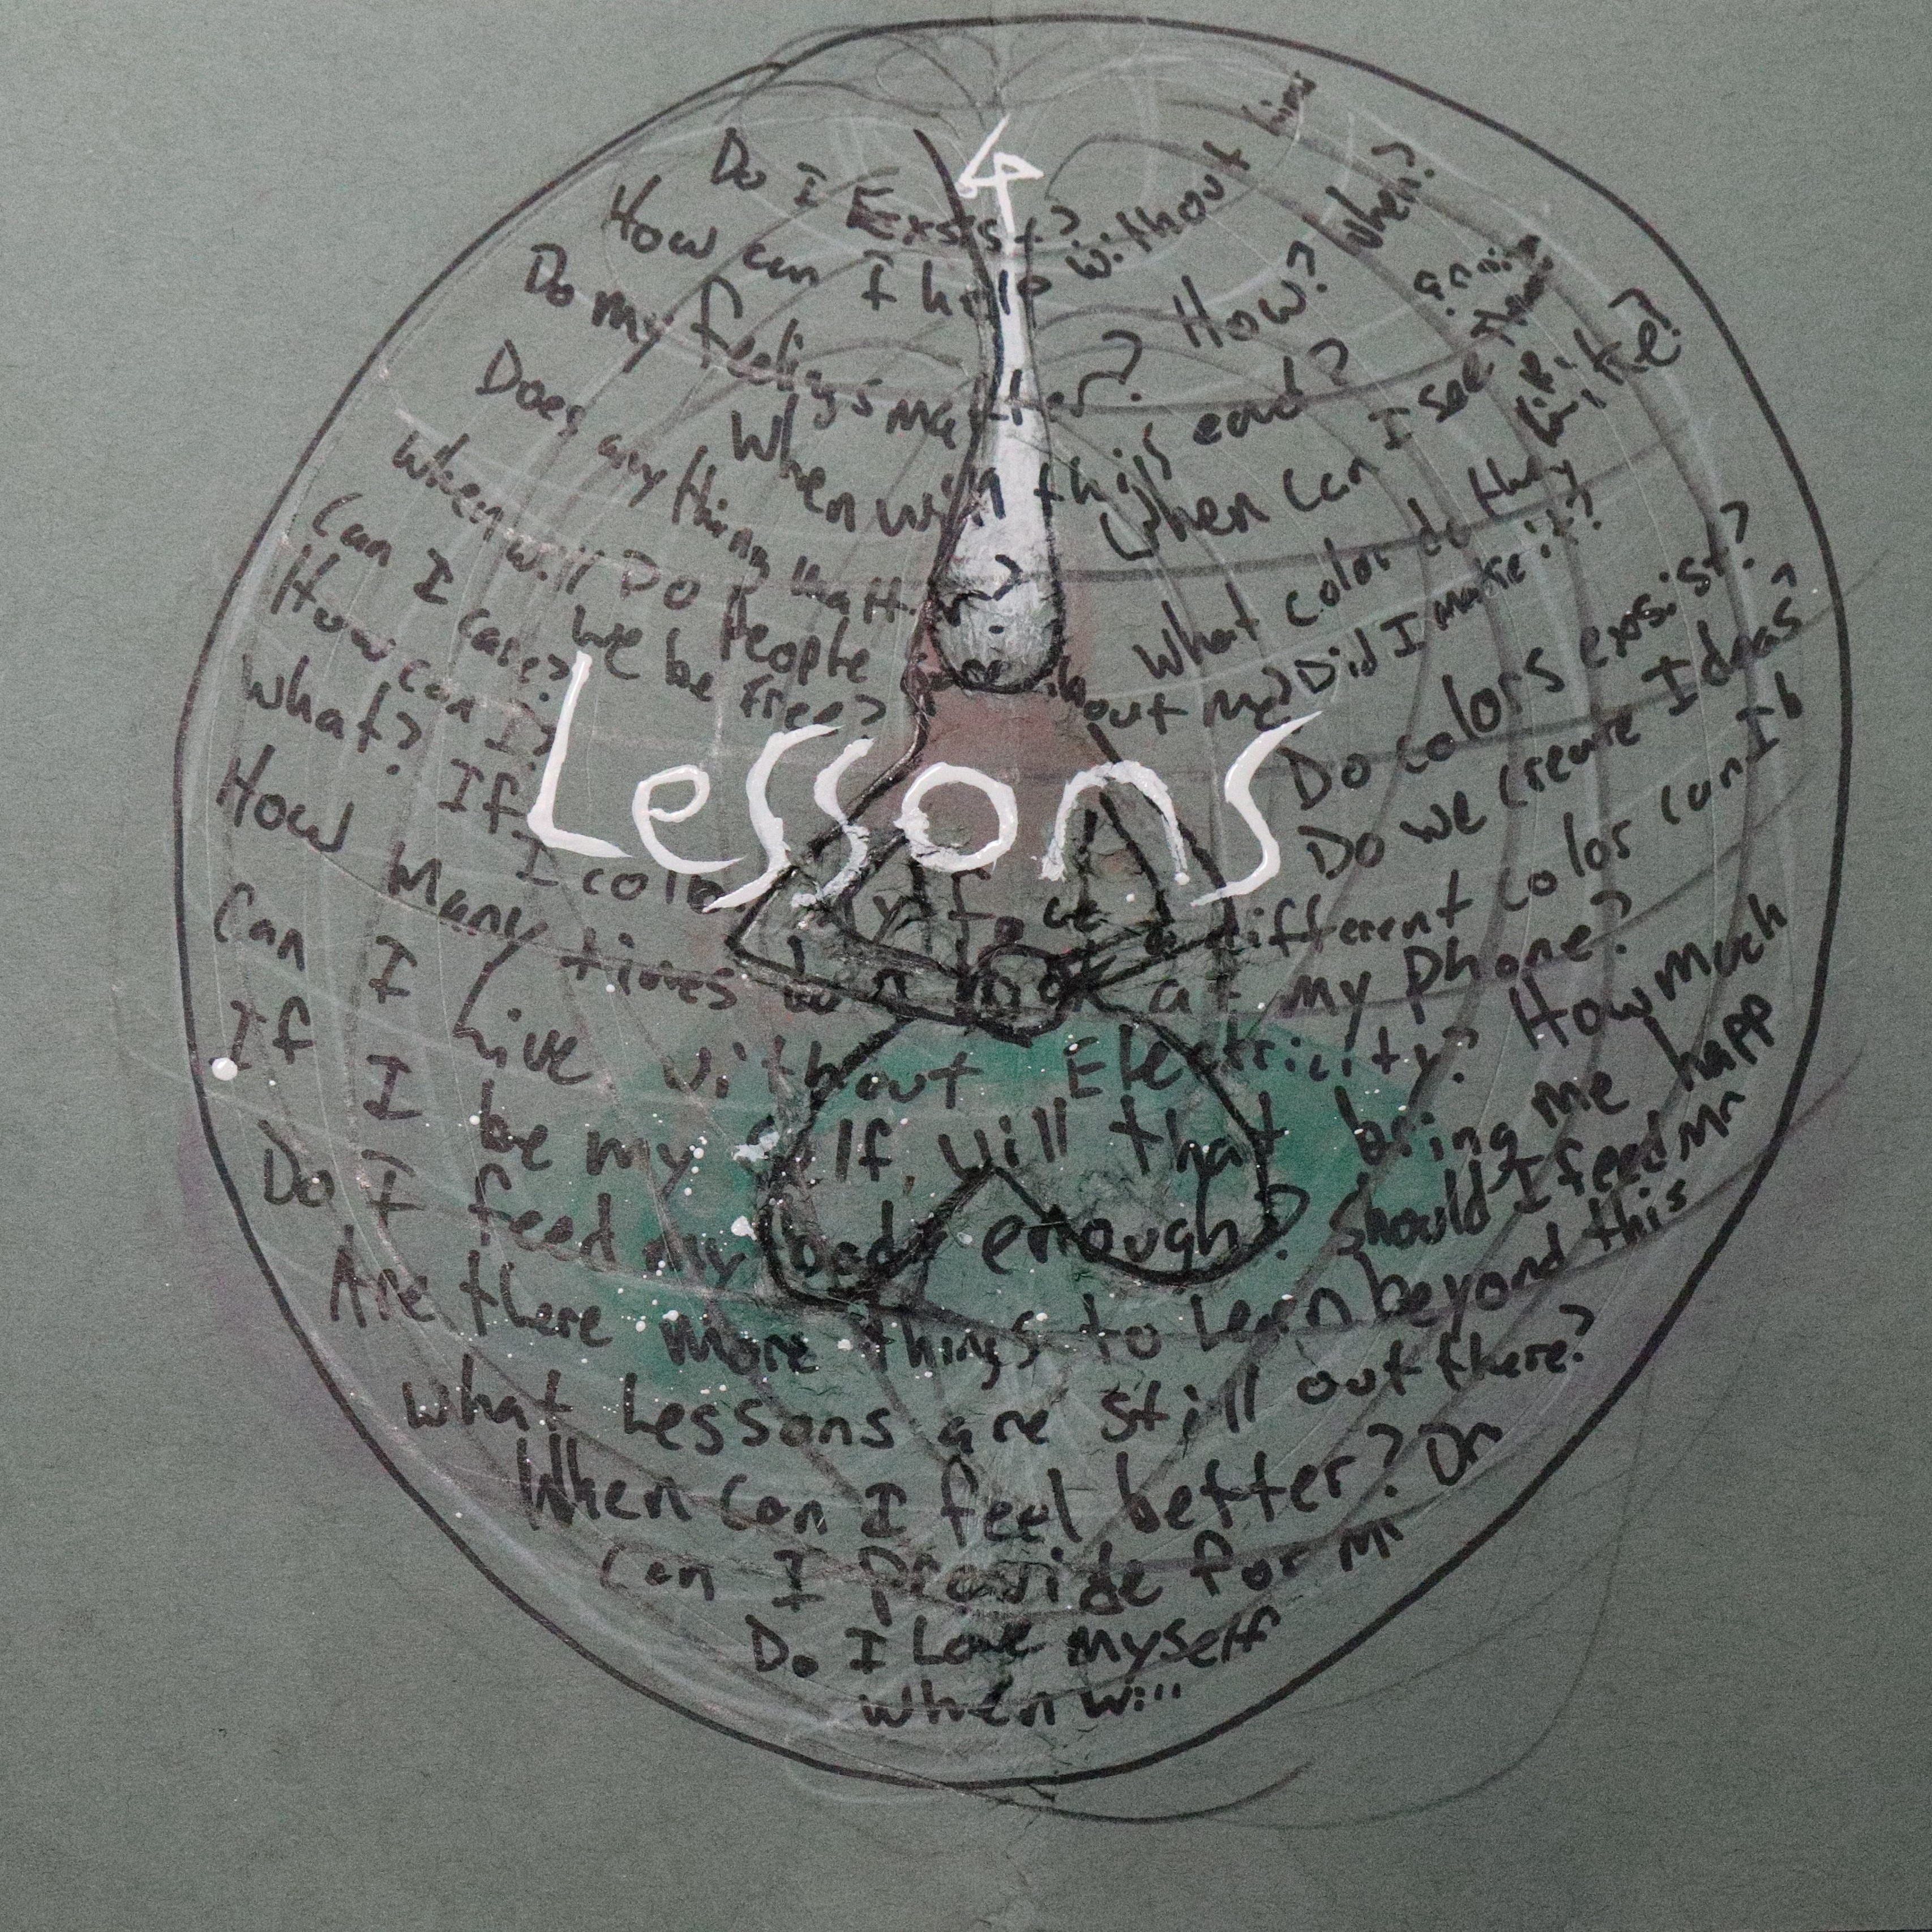 Do I Exsist?
How can I help without him
Do my feelings matter? How? When?
Does anything matter?
When will this end?
When can I see them
When will we be free?
Do People care about me? Did I make it?
What color do they like?
Can I care?
How can I?
What? If I color
to a different color can I b
Do colors exsist?
Do we create Ideas?
Lessons
How Many times look at my phone?
Can I Live without Electricity? How much
If I be my self, will that bring me happ
Do I feed my body enough? Should I feed
Are there more things to lern beyond this
What Lessons are still out there?
When can I feel better?
Can I provide for
Do I Love myself
When will